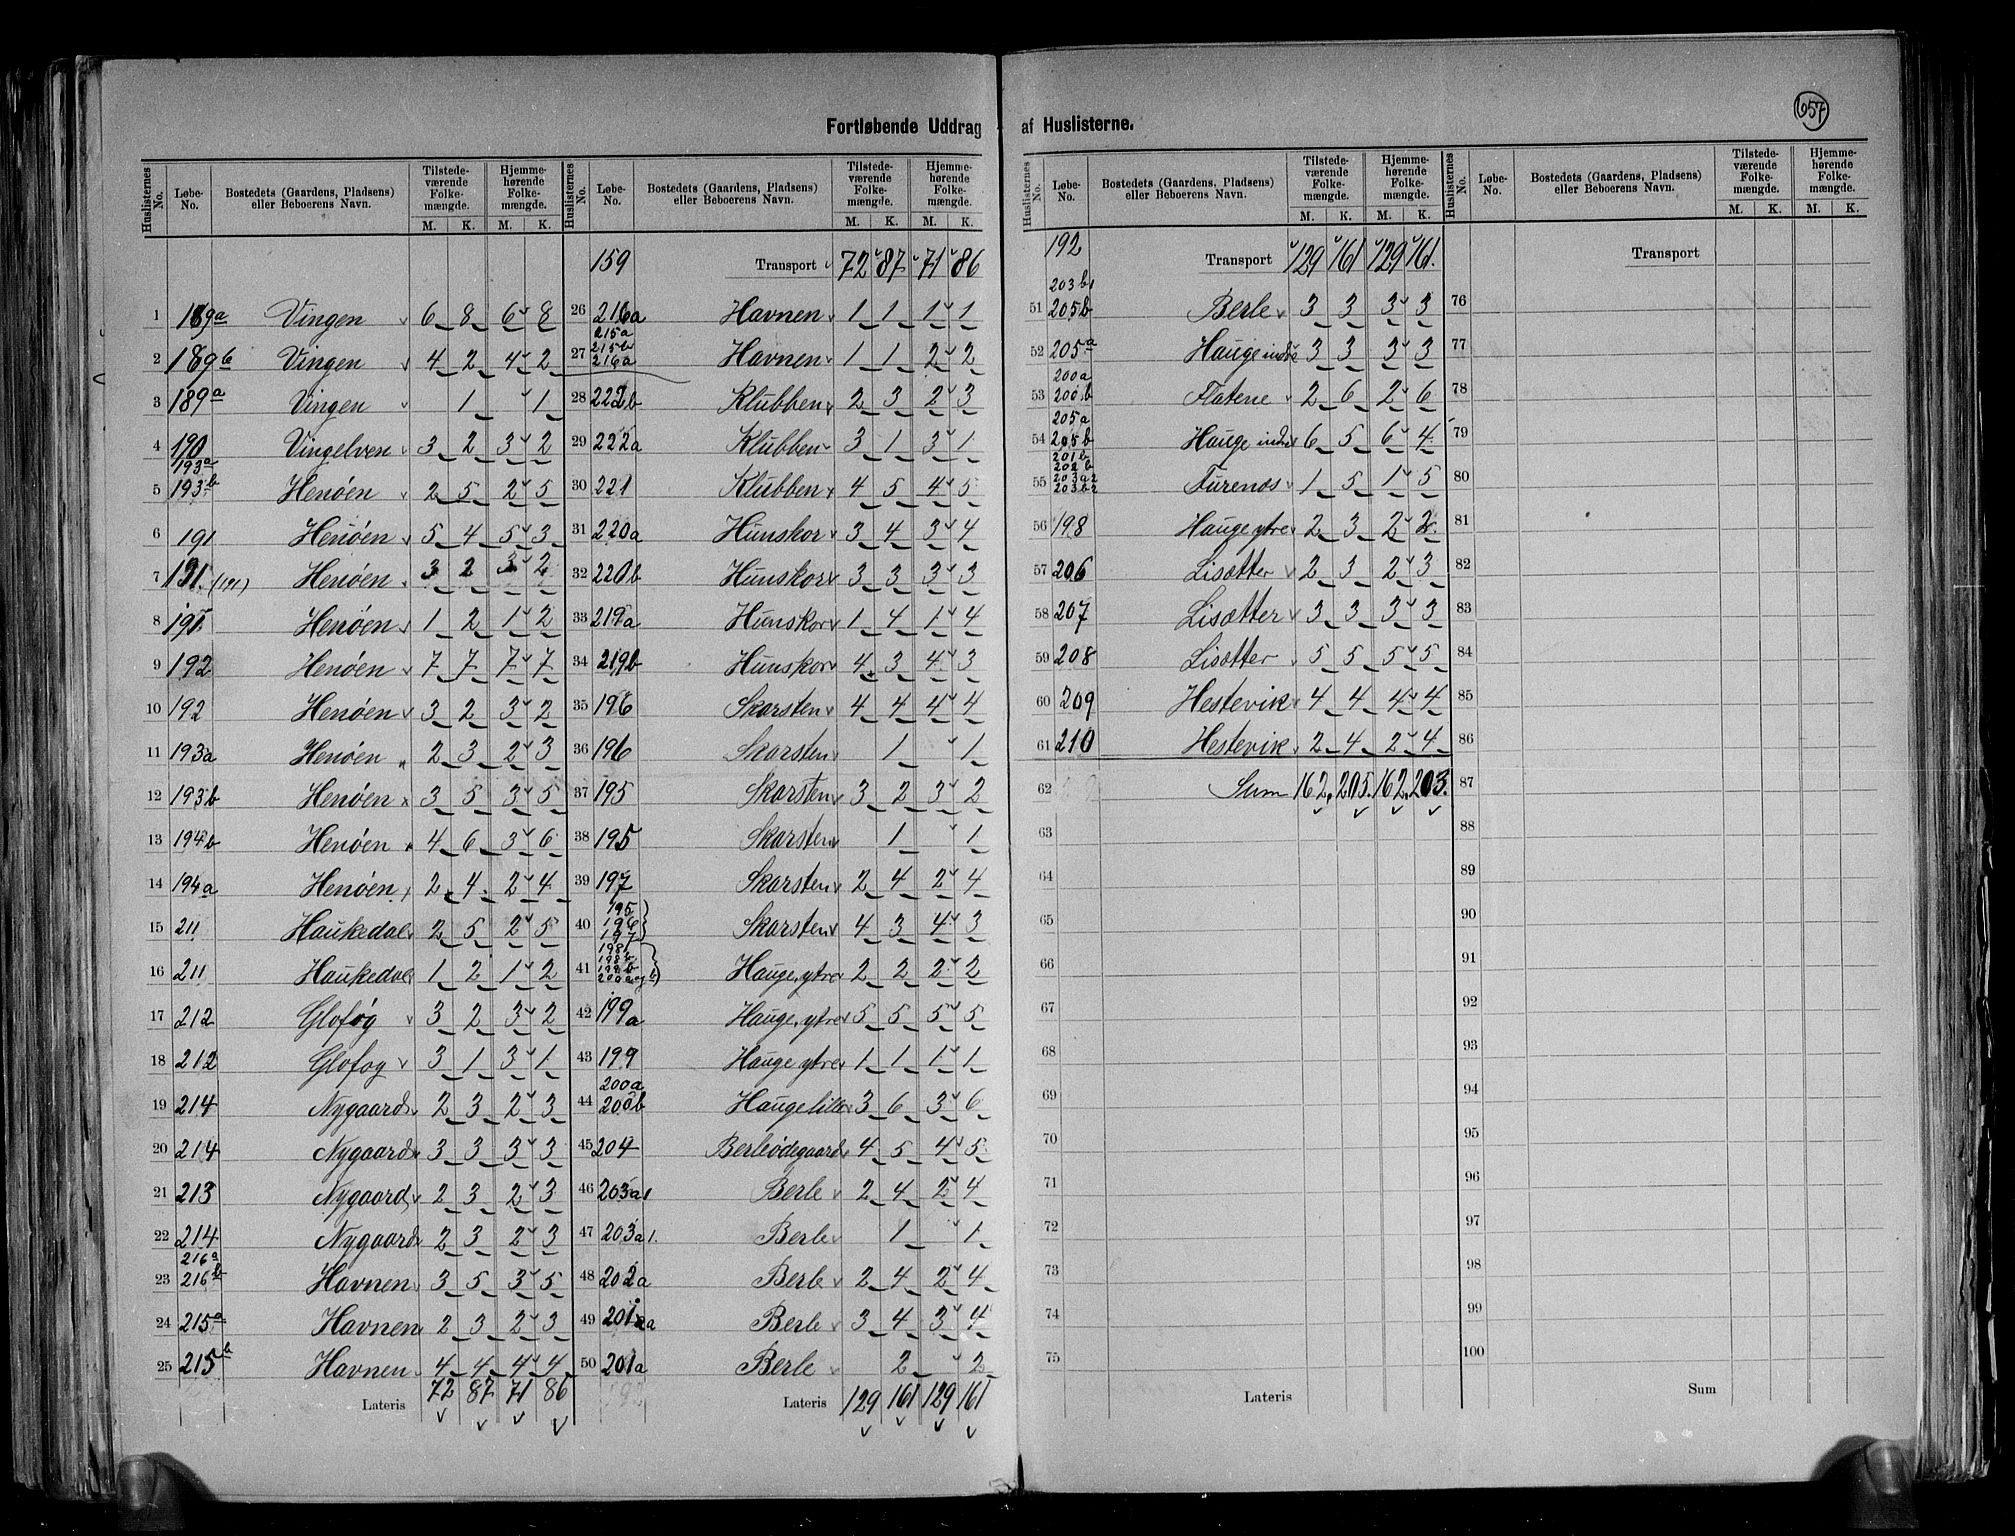 657
Fortløbende Uddrag af Huslisterne.
Huslisternes No. | Løbe-No. | Bostedets (Gaardens, Pladsens) eller Beboerens Navn. | Tilstedeværende Folkemængde. M. K. | Hjemmehørende Folkemængde. M. K.
1 189a Vingen 6 8 6 8
2 189b Vingen 4 2 4 2
3 189a Vingen 1 1
4 190 Vingelven 3 2 3 2
5 193a 193b Henøen 2 5 2 5
6 191 Henøen 5 4 5 3
7 191 (191) Henøen 3 2 3 2
8 191 Henøen 1 2 1 2
9 192 Henøen 7 7 7 7
10 192 Henøen 3 2 3 2
11 193a Henøen 2 3 2 3
12 193b Henøen 3 5 3 5
13 194b Henøen 4 6 3 6
14 194a Henøen 2 4 2 4
15 211 Haukedal 2 5 2 5
16 211 Haukedal 1 2 1 2
17 212 Gloføg 3 2 3 2
18 212 Glofog 3 1 3 1
19 214 Nygaard 2 3 2 3
20 214 Nygaard 3 3 3 3
21 213 Nygaard 2 3 2 3
22 214 Nygaard 2 3 2 3
23 216a 216b Havnen 3 5 3 5
24 215a Havnen 2 3 2 3
25 215b Havnen 4 4 4 4
Lateris 72 87 71 86
Huslisternes No. | Løbe-No. | Bostedets (Gaardens, Pladsens) eller Beboerens Navn. | Tilstedeværende Folkemængde. M. K. | Hjemmehørende Folkemængde. M. K.
159 Transport 72 87 71 86
26 216a Havnen 1 1 1 1
27 215a 215b 216a Havnen 1 1 2 2
28 222b Klubben 2 3 2 3
29 222a Klubben 3 1 3 1
30 221 Klubben 4 5 4 5
31 220a Hunskor 3 4 3 4
32 220b Hunskor 3 3 3 3
33 219a Hunskor 1 4 1 4
34 219b Hunskor 4 3 4 3
35 196 Skorsten 4 4 4 4
36 196 Skorsten 1 1
37 195 Skorsten 3 2 3 2
38 195 Skorsten 1 1
39 197 Skorsten 2 4 2 4
40 195 196 197 Skorsten 4 3 4 3
41 Hauge, ytre 2 2 2 2
42 199a Hauge, ytre 5 5 5 5
43 199 Hauge ytre 1 1 1 1
44 200a 200b Haugelille 3 6 3 6
45 204 Berleødegaard 4 5 4 5
46 203a1 Berle 2 4 2 4
47 203a1. Berle 1 1
48 202a Berle 2 4 2 4
49 Berle 3 4 3 4
50 201a Berle 2 2
Lateris 129 161 129 161
Huslisternes No. | Løbe-No. | Bostedets (Gaardens, Pladsens) eller Beboerens Navn. | Tilstedeværende Folkemængde. M. K. | Hjemmehørende Folkemængde. M. K.
192 Transport 129 161 129 161.
51 203b1 205b Berle 3 3 3 3
52 205a Hauge indre 3 3 3 3
53 200a 200b Flatene 2 6 2 6
54 205a 205b Hauge indre 6 5 6 4
55 201b 202b 203a2 203b2 Furenes 1 5 1 5
56 198 Hauge ytre 2 3 2 2
57 206 Lisætter 2 3 2 3
58 207 Lisætter 3 3 3 3
59 208 Lisætter 5 5 5 5
60 209 Hestevik 4 4 4 4
61 210 Hestevik 2 4 2 4
62 Sum 162, 205. 162, 203.
63
64
65
66
67
68
69
70
71
72
73
74
75
Lateris
Huslisternes No. | Løbe-No. | Bostedets (Gaardens, Pladsens) eller Beboerens Navn. | Tilstedeværende Folkemængde. M. K. | Hjemmehørende Folkemængde. M. K.
Transport
76
77
78
79
80
81
82
83
84
85
86
87
88
89
90
91
92
93
94
95
96
97
98
99
100
Sum